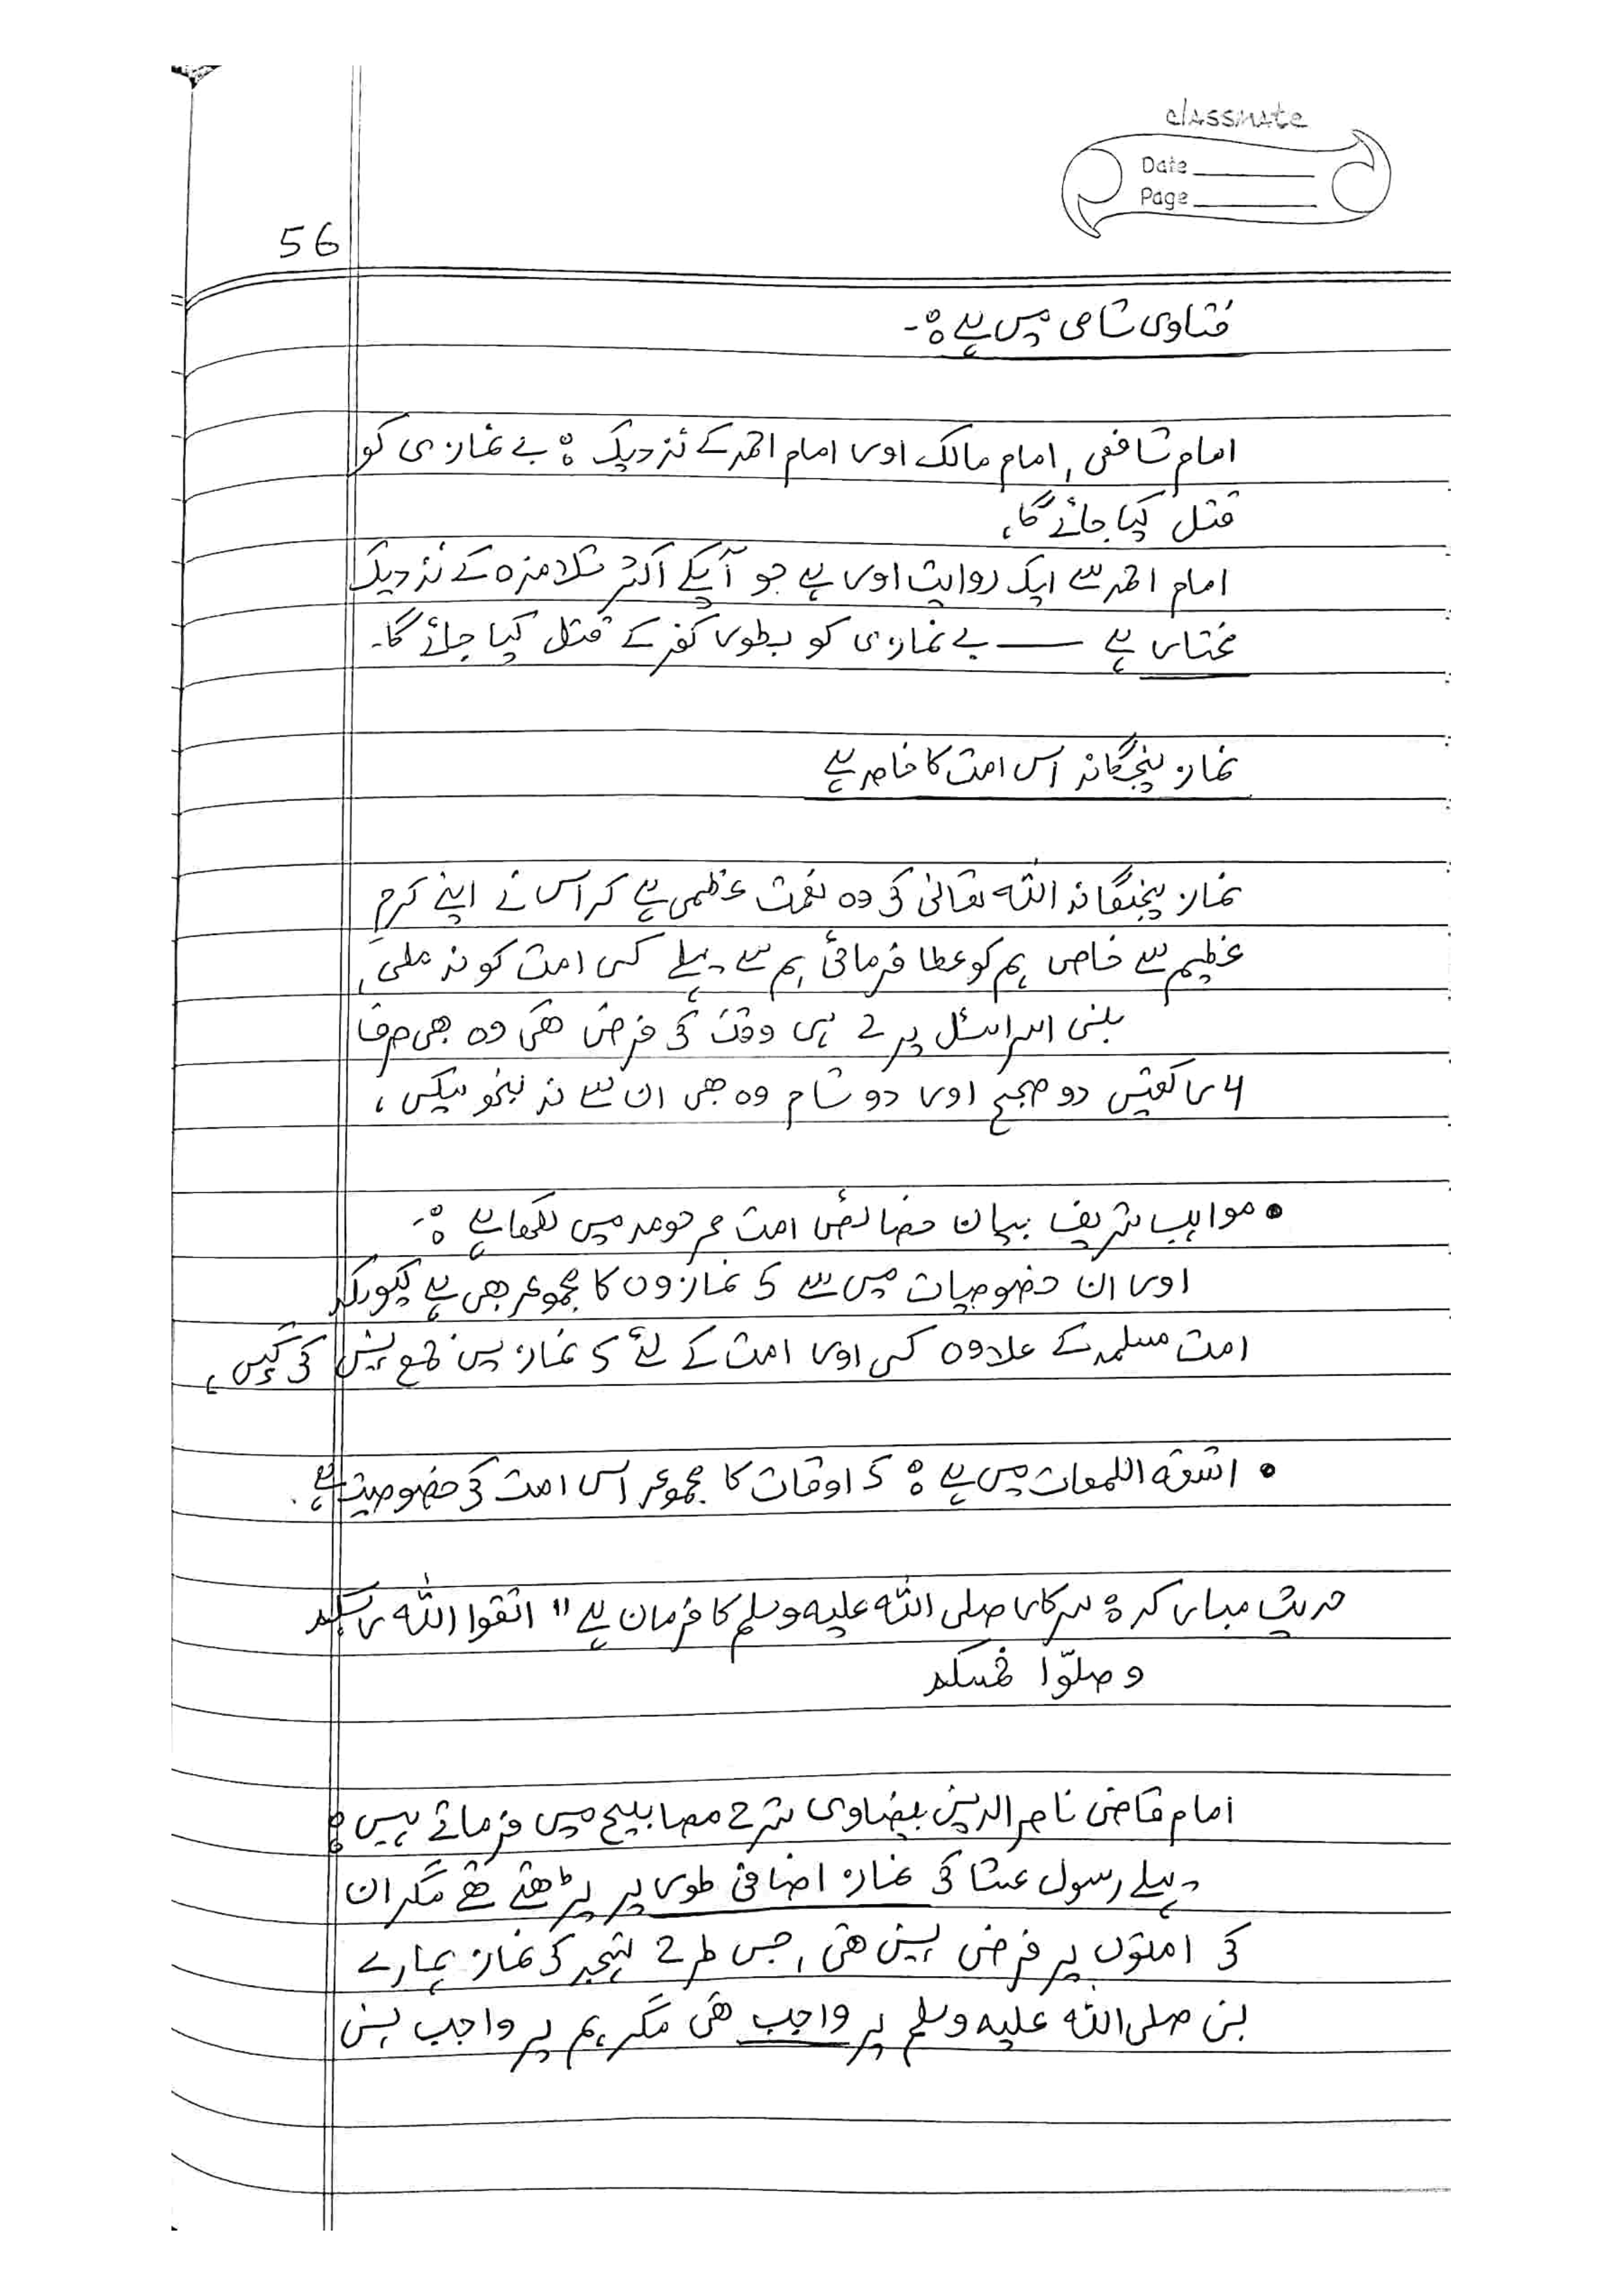 classmate
Date
Page
56
فتاوی شامی میں ہے :-
امام شافعی , امام مالک اور امام احمد کے نزدیک : بے نمازی کو
قتل کیا جائے گا،
امام احمد سے ایک روایت اور ہے جو آپکے اکثر تلامذہ کے نزدیک
مختار ہے — بے نمازی کو بطور کفر کے قتل کیا جائے گا۔
نماز پنجگانہ اس امت کا خاصہ ہے
نماز پنجگانہ اللہ تعالیٰ کی وہ نعمت عظمی ہے کہ اس نے اپنے کرمِ
عظیم سے خاص ہم کو عطا فرمائی ہم سے پہلے کسی امت کو نہ ملی ,
بنی اسرائیل پر 2 ہی وقت کی فرض تھی وہ بھی صرف
4 رکعتیں دو صبح اور دو شام وہ بھی ان سے نہ نبھو سکیں ،
• مواہب شریف بیان خصائص امت مرحومہ میں لکھا ہے :-
اور ان خصوصیات میں سے 5 نمازوں کا مجموعہ بھی ہے کیونکہ
امت مسلمہ کے علاوہ کسی اور امت کے لئے 5 نمازیں جمع نہیں کی گئیں ،
• اشعۃ اللمعات میں ہے : 5 اوقات کا مجموعہ اس امت کی خصوصیت ہے .
حدیث مبارکہ : سرکار صلی اللہ علیہ وسلم کا فرمان ہے " اتقوا اللہ ربکم
و صلّوا خمسکم
امام قاضی ناصر الدین بیضاوی شرح مصابیح میں فرماتے ہیں :
پہلے رسول عشا کی نماز اضافی طور پر پڑھتے تھے مگر ان
کی امتوں پر فرض نہیں تھی , جس طرح تہجد کی نماز ہمارے
نبی صلی اللہ علیہ وسلم پر واجب تھی مگر ہم پر واجب نہیں